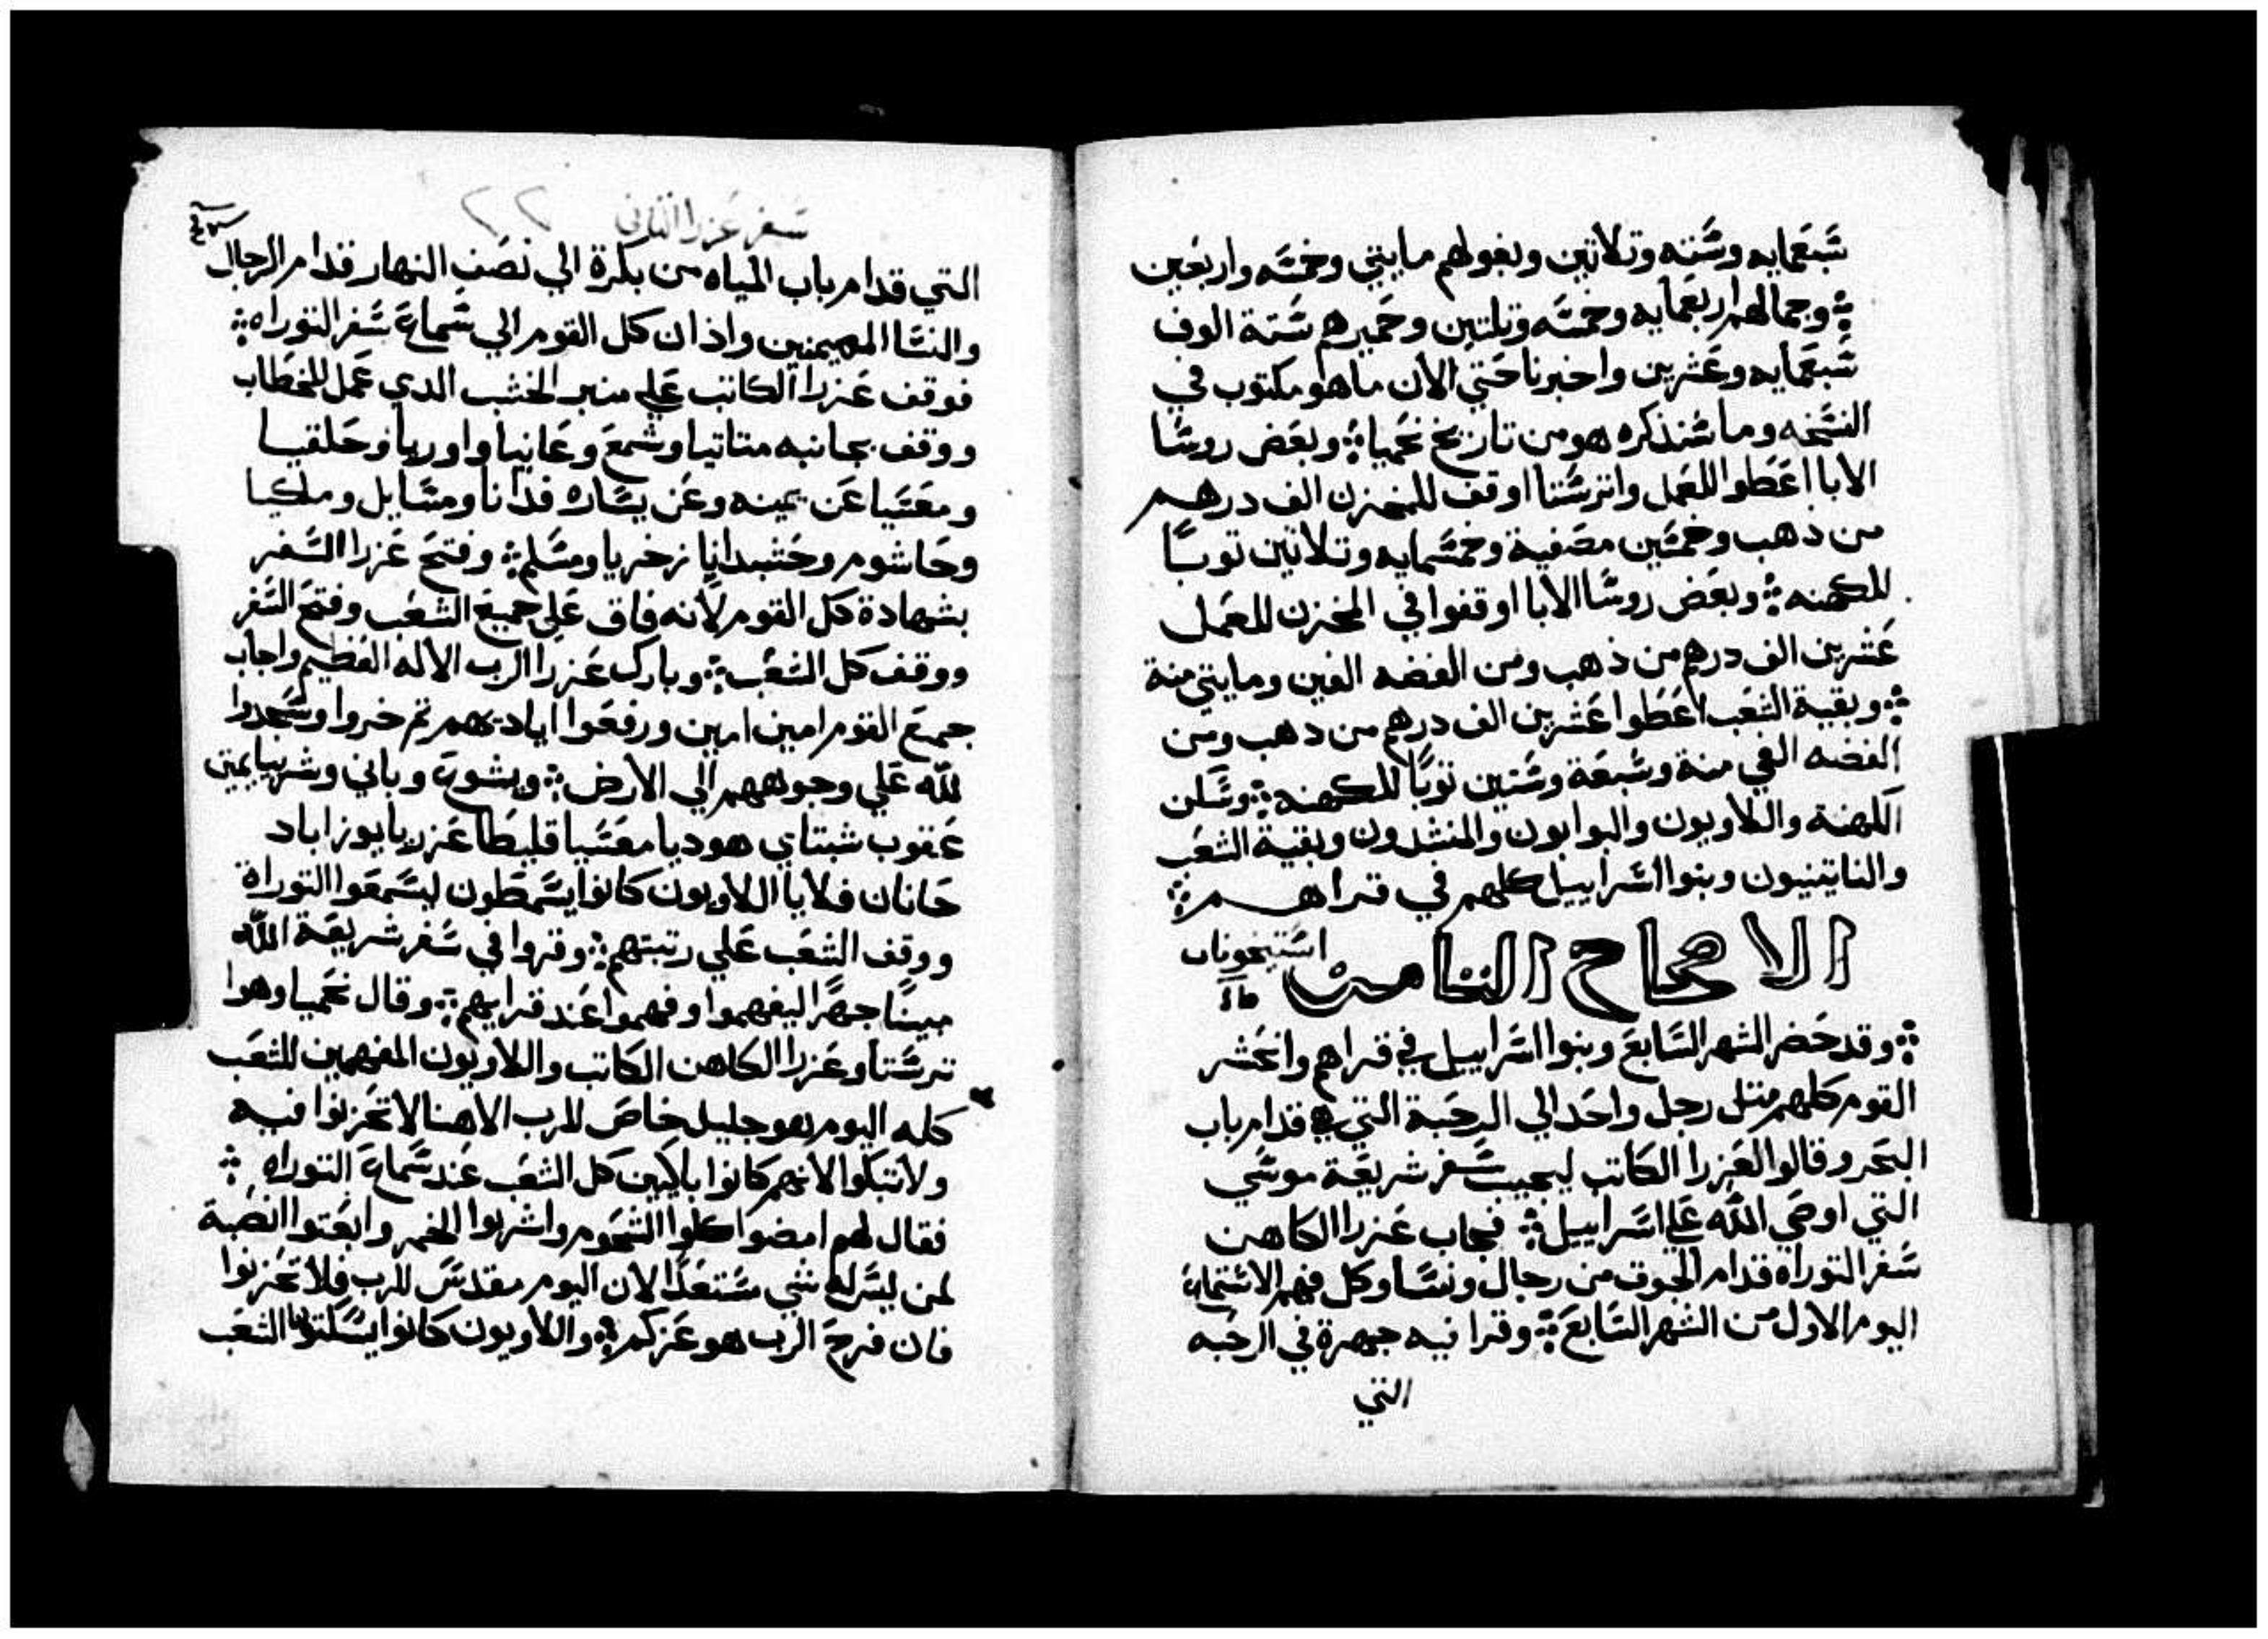 شبعمايه وشته وتلاتين وبغولهم مايتي وخمشه واربعين
وجمالهم اربعمايه وخمشه وتلتين وحميرهم شتة الوف
شبعمايه وعشرين واخبرنا حتي الان ما هو مكتوب في
النشخه وما شنذكره هو من تاريخ نحميا وبعض روشا
الابا اعطوا للعمل واترشتا اوقف للمخزن الف درهم
من دهب وخمشين مصفية وخمشمايه وتلاتين توبا
للكهنه وبعض روشا الابا اوقفوا في المخزن للعمل
عشرين الف درهم من ذهب ومن الفضه الفين ومايتي منة
وبقية الشعب اعطوا عشرين الف درهم من دهب ومن
الفضه الفي منة وشبعة وشتين توبا للكهنه وشكن
الكهنة واللاويون والبوابون والمنشدون وبقية الشعب
والناتينيون وبنوا اشراييل كلهم في قراهم
الاصحاح الثامن
اشتيخونات
وقد حضر الشهر الشابع وبنوا اشراييل في قراهم وانحشر
القوم كلهم متل رجل واحد الي الرحبة التي هي قدام باب
البحر وقالوا لعزرا الكاتب ليجيب شفر شريعة موشي
التي اوصي الله علي اشراييل فجاب عزرا الكاهن
شفر التوراه قدام الجوق من رجال ونشا وكل فهم الاشتماع
اليوم الاول من الشهر الشابع وقرا فيه جهرة في الرحبه
التي
سفر عزرا الثاني
التي قدام باب المياه من بكرة الي نصف النهار قدام الرجال
والنشا المهيمنين واذان كل القوم الي شماع شفر التوراه
فوقف عزرا الكاتب علي منبر الخشب الدي عمل للخطاب
ووقف بجانبه متاتيا وشمع وعانيا واوريا وحلقيا
ومعشيا عن يمينه وعن يشاره فدانا ومشايل وملكيا
وحاشوم وحشبدانا زخريا ومشلم وفتح عزرا الشفر
بشهادة كل القوم لانه فاق علي جميع الشعب وفتح الشفر
ووقف كل الشعب وبارك عزرا الرب الاله العظيم واجاب
جميع القوم امين امين ورفعوا اياديهم تم خروا وشجدوا
لله علي وجوههم الي الارض ويشوع وباني وشربيا يمين
عقوب شبتاي هوديا معشيا قليطا عزريا يوزاباد
حانان فلايا اللاويون كانوا يشمطون ليشمعوا التوراة
ووقف الشعب علي رتبتهم وقروا في شفر شريعة الله
مبينا جهرا ليفهموا وفهموا عند قرايهم وقال نحميا وهوا
ترشتا وعزرا الكاهن الكاتب واللاويون المفهمين للشعب
كله اليوم هو جليل خاص للرب الاهنا لا تحزنوا فيه
ولا تبكوا لانهم كانوا باكين كل الشعب عند شماع التوراه
فقال لهم امضوا كلوا الشحوم واشربوا الخمر وابعتوا انصبة
لمن ليش له شي مشتعدا لان اليوم مقدش للرب فلا تحزنوا
فان فرح الرب هو عزكم واللاويون كانوا يشكتوا الشعب